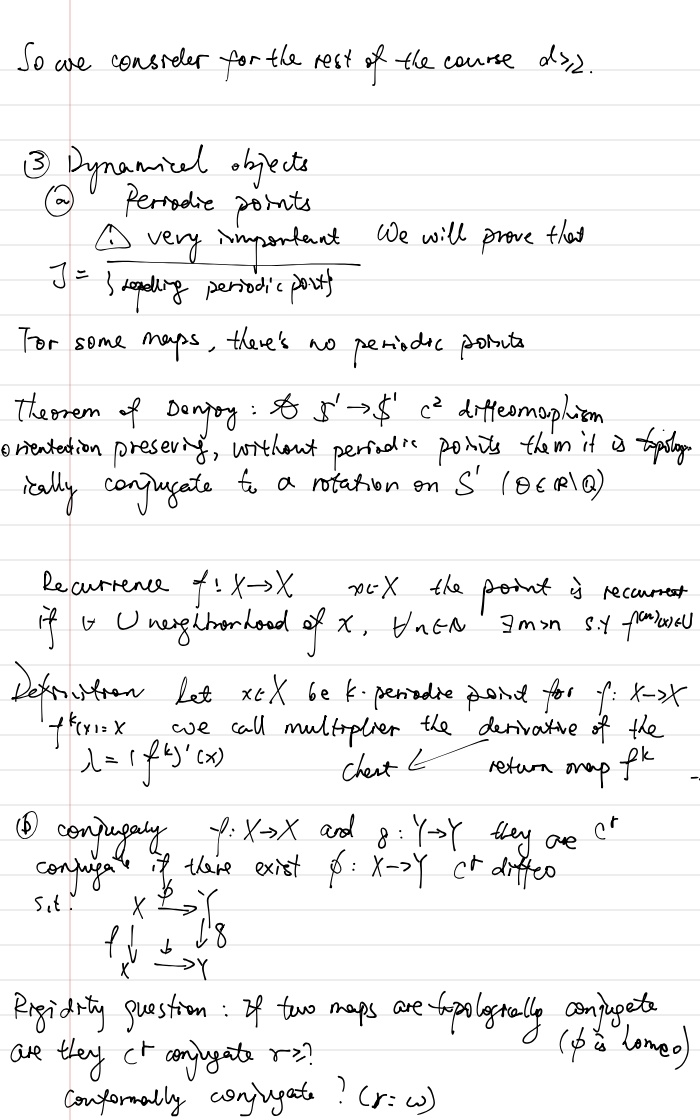 So we consider for the rest of the course d≥2.
③ Dynamical objects
ⓐ Periodic points
⚠ very important We will prove that
J = \overline{\{repelling periodic point\}}
For some maps, there's no periodic points
Theorem of Denjoy: S¹→S¹ C² diffeomorphism
orientation preserving, without periodic points then it is topolog
ically conjugate to a rotation on S¹ (θ∈ℝ\ℚ)
Recurrence f: X→X x∈X the point is recurrent
if ∀ U neighborhood of x, ∀n∈ℕ ∃m>n s.t f^{(m)}(x)∈U
Definition Let x∈X be k-periodic point for f: X→X
f^k(x)=x we call multiplier the derivative of the
λ=(f^k)'(x) chart ← return map f^k
ⓑ conjugacy f: X→X and g: Y→Y they are C^r
conjugate if there exist ϕ: X→Y C^r diffeo
s.t. X →ϕ Y
f↓ ↓g
X →ϕ Y
Rigidity question: If two maps are topologically conjugate
(ϕ is homeo)
are they C^r conjugate r≥?
conformally conjugate? (r=ω)